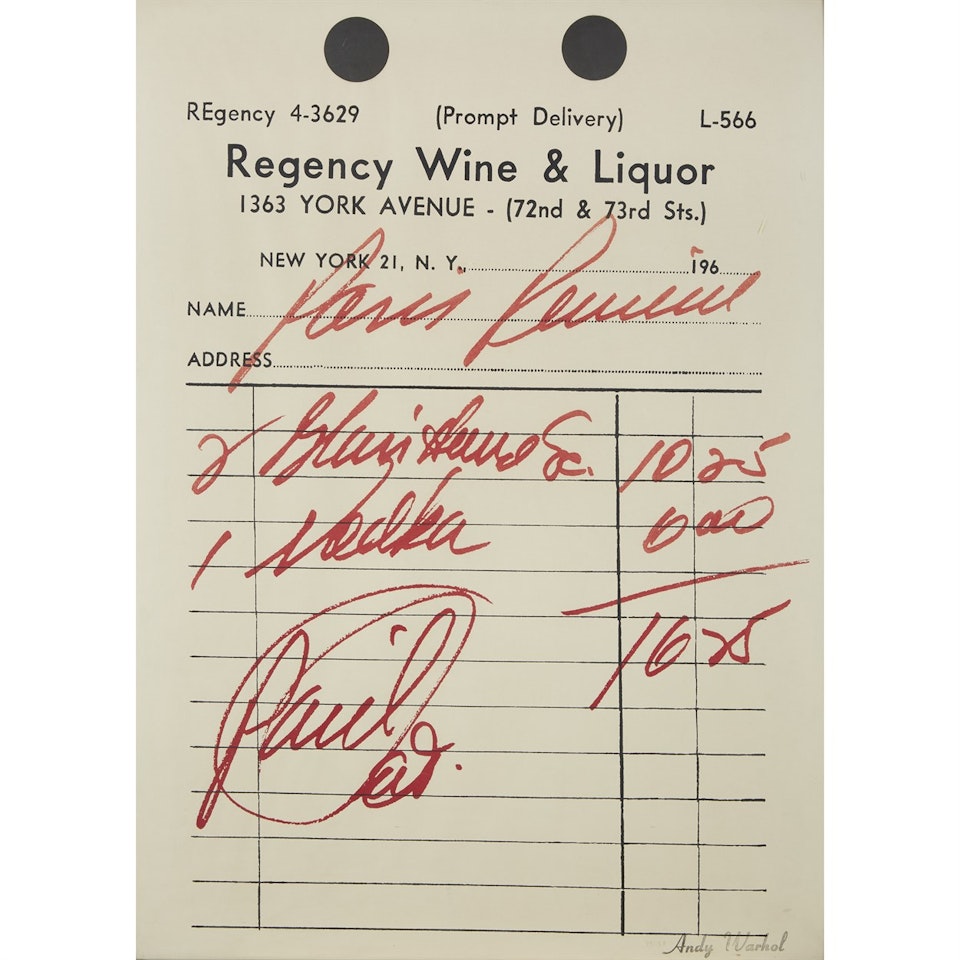 REgency 4-3629 (Prompt Delivery) L-566
Regency Wine & Liquor
1363 YORK AVENUE - (72nd & 73rd Sts.)
NEW YORK 21, N. Y., 196
NAME Paris Review
ADDRESS
2 Sc. 10 25
1 Vodka 6 00
16 25
Paid
Andy Warhol